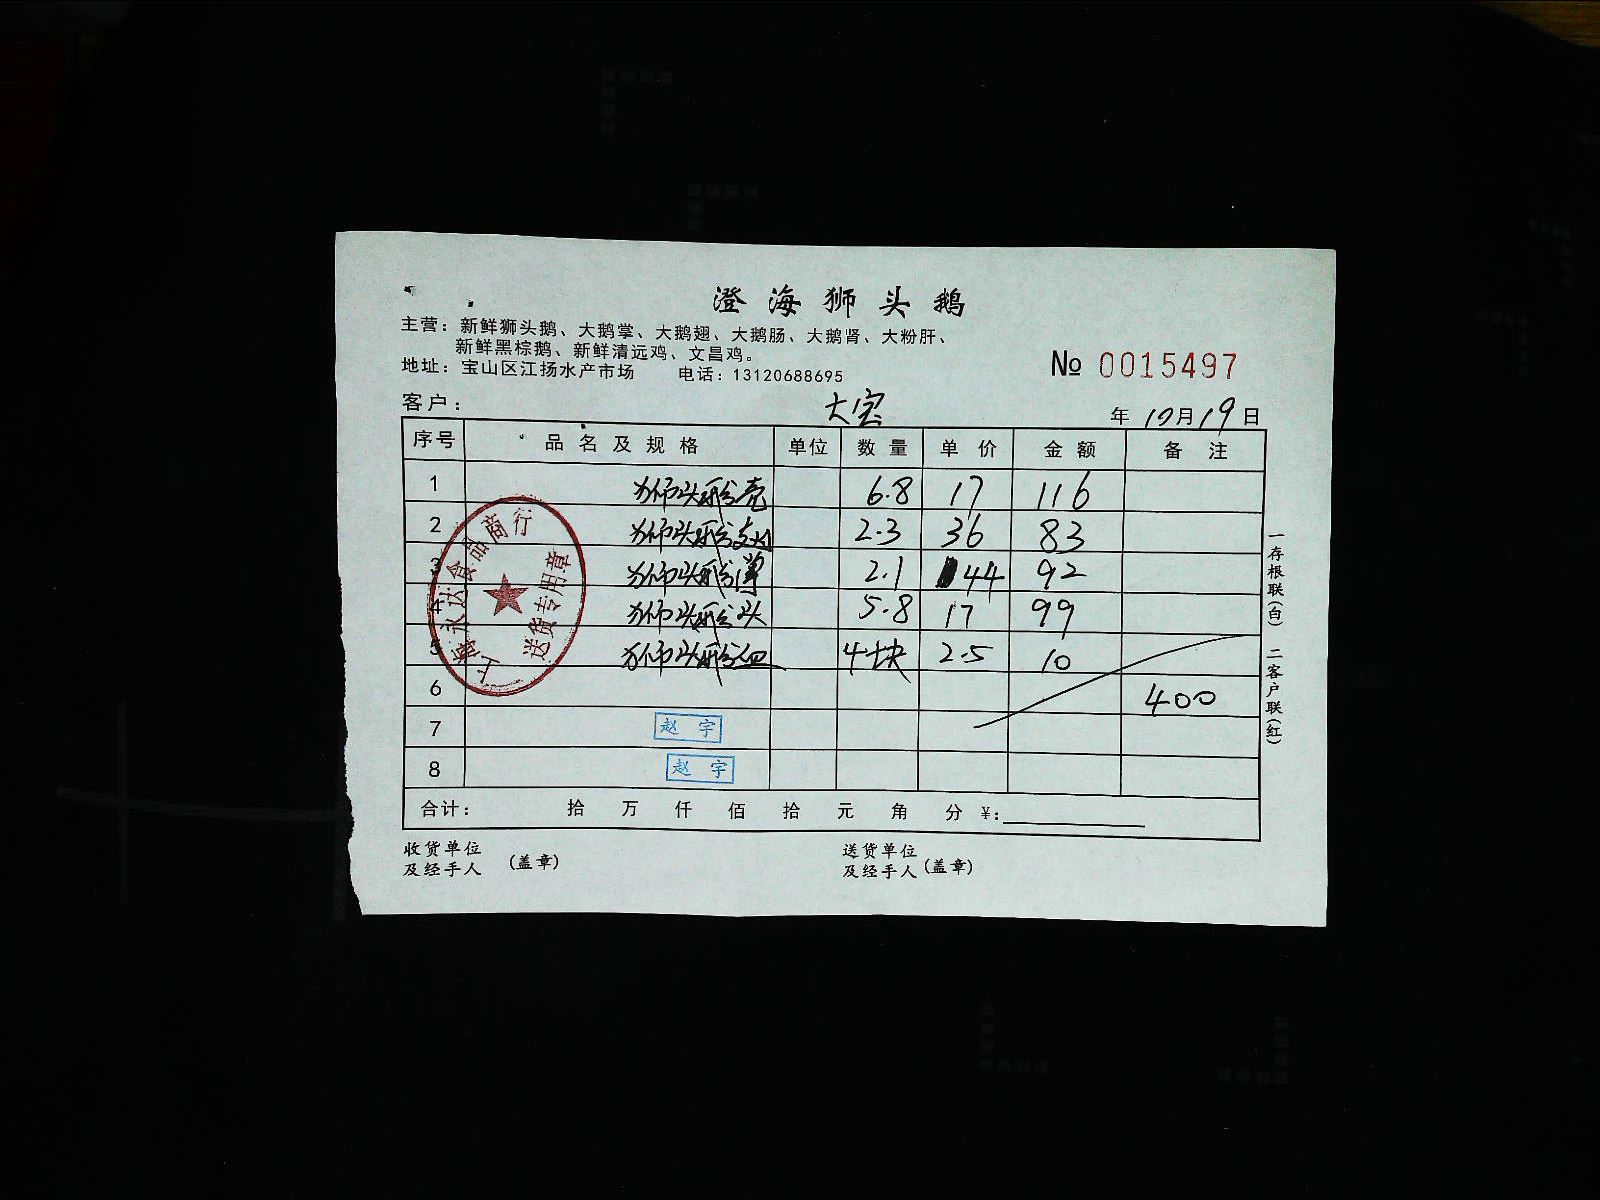 澄海狮头鹅
主营：新鲜狮头鹅、大鹅掌、大鹅翅、大鹅肠、大鹅肾、大粉肝、
新鲜黑棕鹅、新鲜清远鸡、文昌鸡。
地址：宝山区江扬水产市场 电话：13120688695
№ 0015497
客户： 大宝 年 10月19日
序号 品名及规格 单位 数量 单价 金额 备注
1 狮头鹅壳 6.8 17 116
2 狮头鹅 2.3 36 83
3 狮头鹅 2.1 44 92
4 狮头鹅头 5.8 17 99
5 狮头鹅血 4块 2.5 10
6 400
7 赵宇
8 赵宇
合计： 拾 万 仟 佰 拾 元 角 分 ¥:
收货单位
及经手人 (盖章)
送货单位
及经手人 (盖章)
一存根联(白) 二客户联(红)
上海永达食品商行
送货专用章